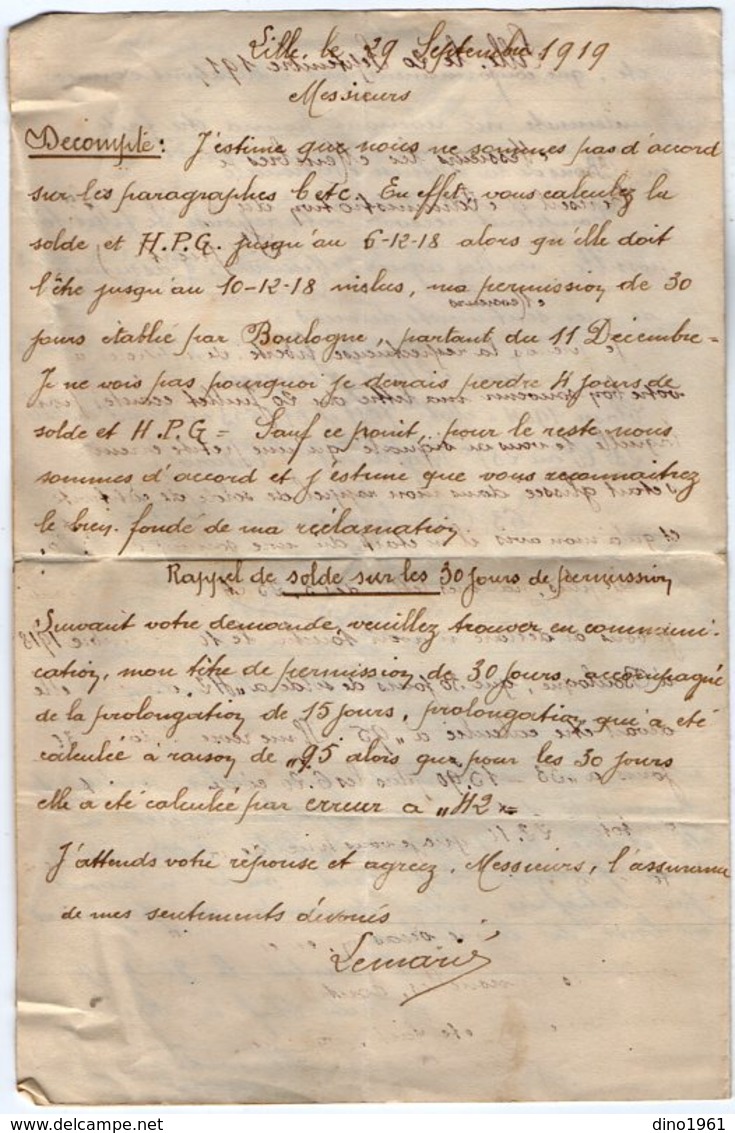 Lille le 29 Septembre 1919
Messieurs
Décompte: J'estime que nous ne sommes pas d'accord
sur les paragraphes b et c. En effet vous calculez la
solde et H.P.G. jusqu'au 6-12-18 alors qu'elle doit
l'être jusqu'au 10-12-18 inclus, ma permission de 30
jours établie par Boulogne, partant du 11 Décembre=
Je ne vois pas pourquoi je devrais perdre 4 jours de
solde et H.P.G= Sauf ce point, pour le reste nous
sommes d'accord et j'estime que vous reconnaitrez
le bien-fondé de ma réclamation.
Rappel de solde sur les 30 jours de permission
Suivant votre demande, veuillez trouver en communi-
cation, mon titre de permission de 30 jours, accompagné
de la prolongation de 15 jours, prolongation, qui a été
calculée à raison de „95 alors que pour les 30 jours
elle a été calculée par erreur à „42=
J'attends votre réponse et agréez, Messieurs, l'assurance
de mes sentiments dévoués
Lemarié
dino1961